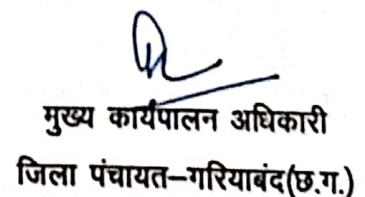 मुख्य कार्यपालन अधिकारी
जिला पंचायत–गरियाबंद(छ.ग.)